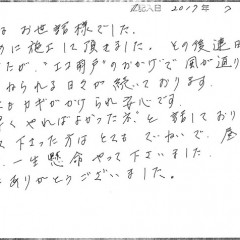 記入日 2017年 7
は お世話様でした。
めに施工して頂きました。その後連日
たが、"エコ雨戸"のおかげで風が通り
ねられる日々が続いております。
もカギがかけられ安心です。
早くやればよかったネ"と話しており
下さった方はとても ていねいで、
一生懸命やって下さいました。
ありがとうございました。